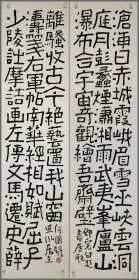 滄海日赤城霞峨眉雪巫峽雲洞
庭月彭蠡煙瀟湘雨武夷峯廬山
瀑布合宇宙奇觀繪吾齋壁
少陵詩摩詰畫左傳文馬遷史薛
濤箋右軍帖南華經相如賦屈子
離騷收古今絕藝置我山窗